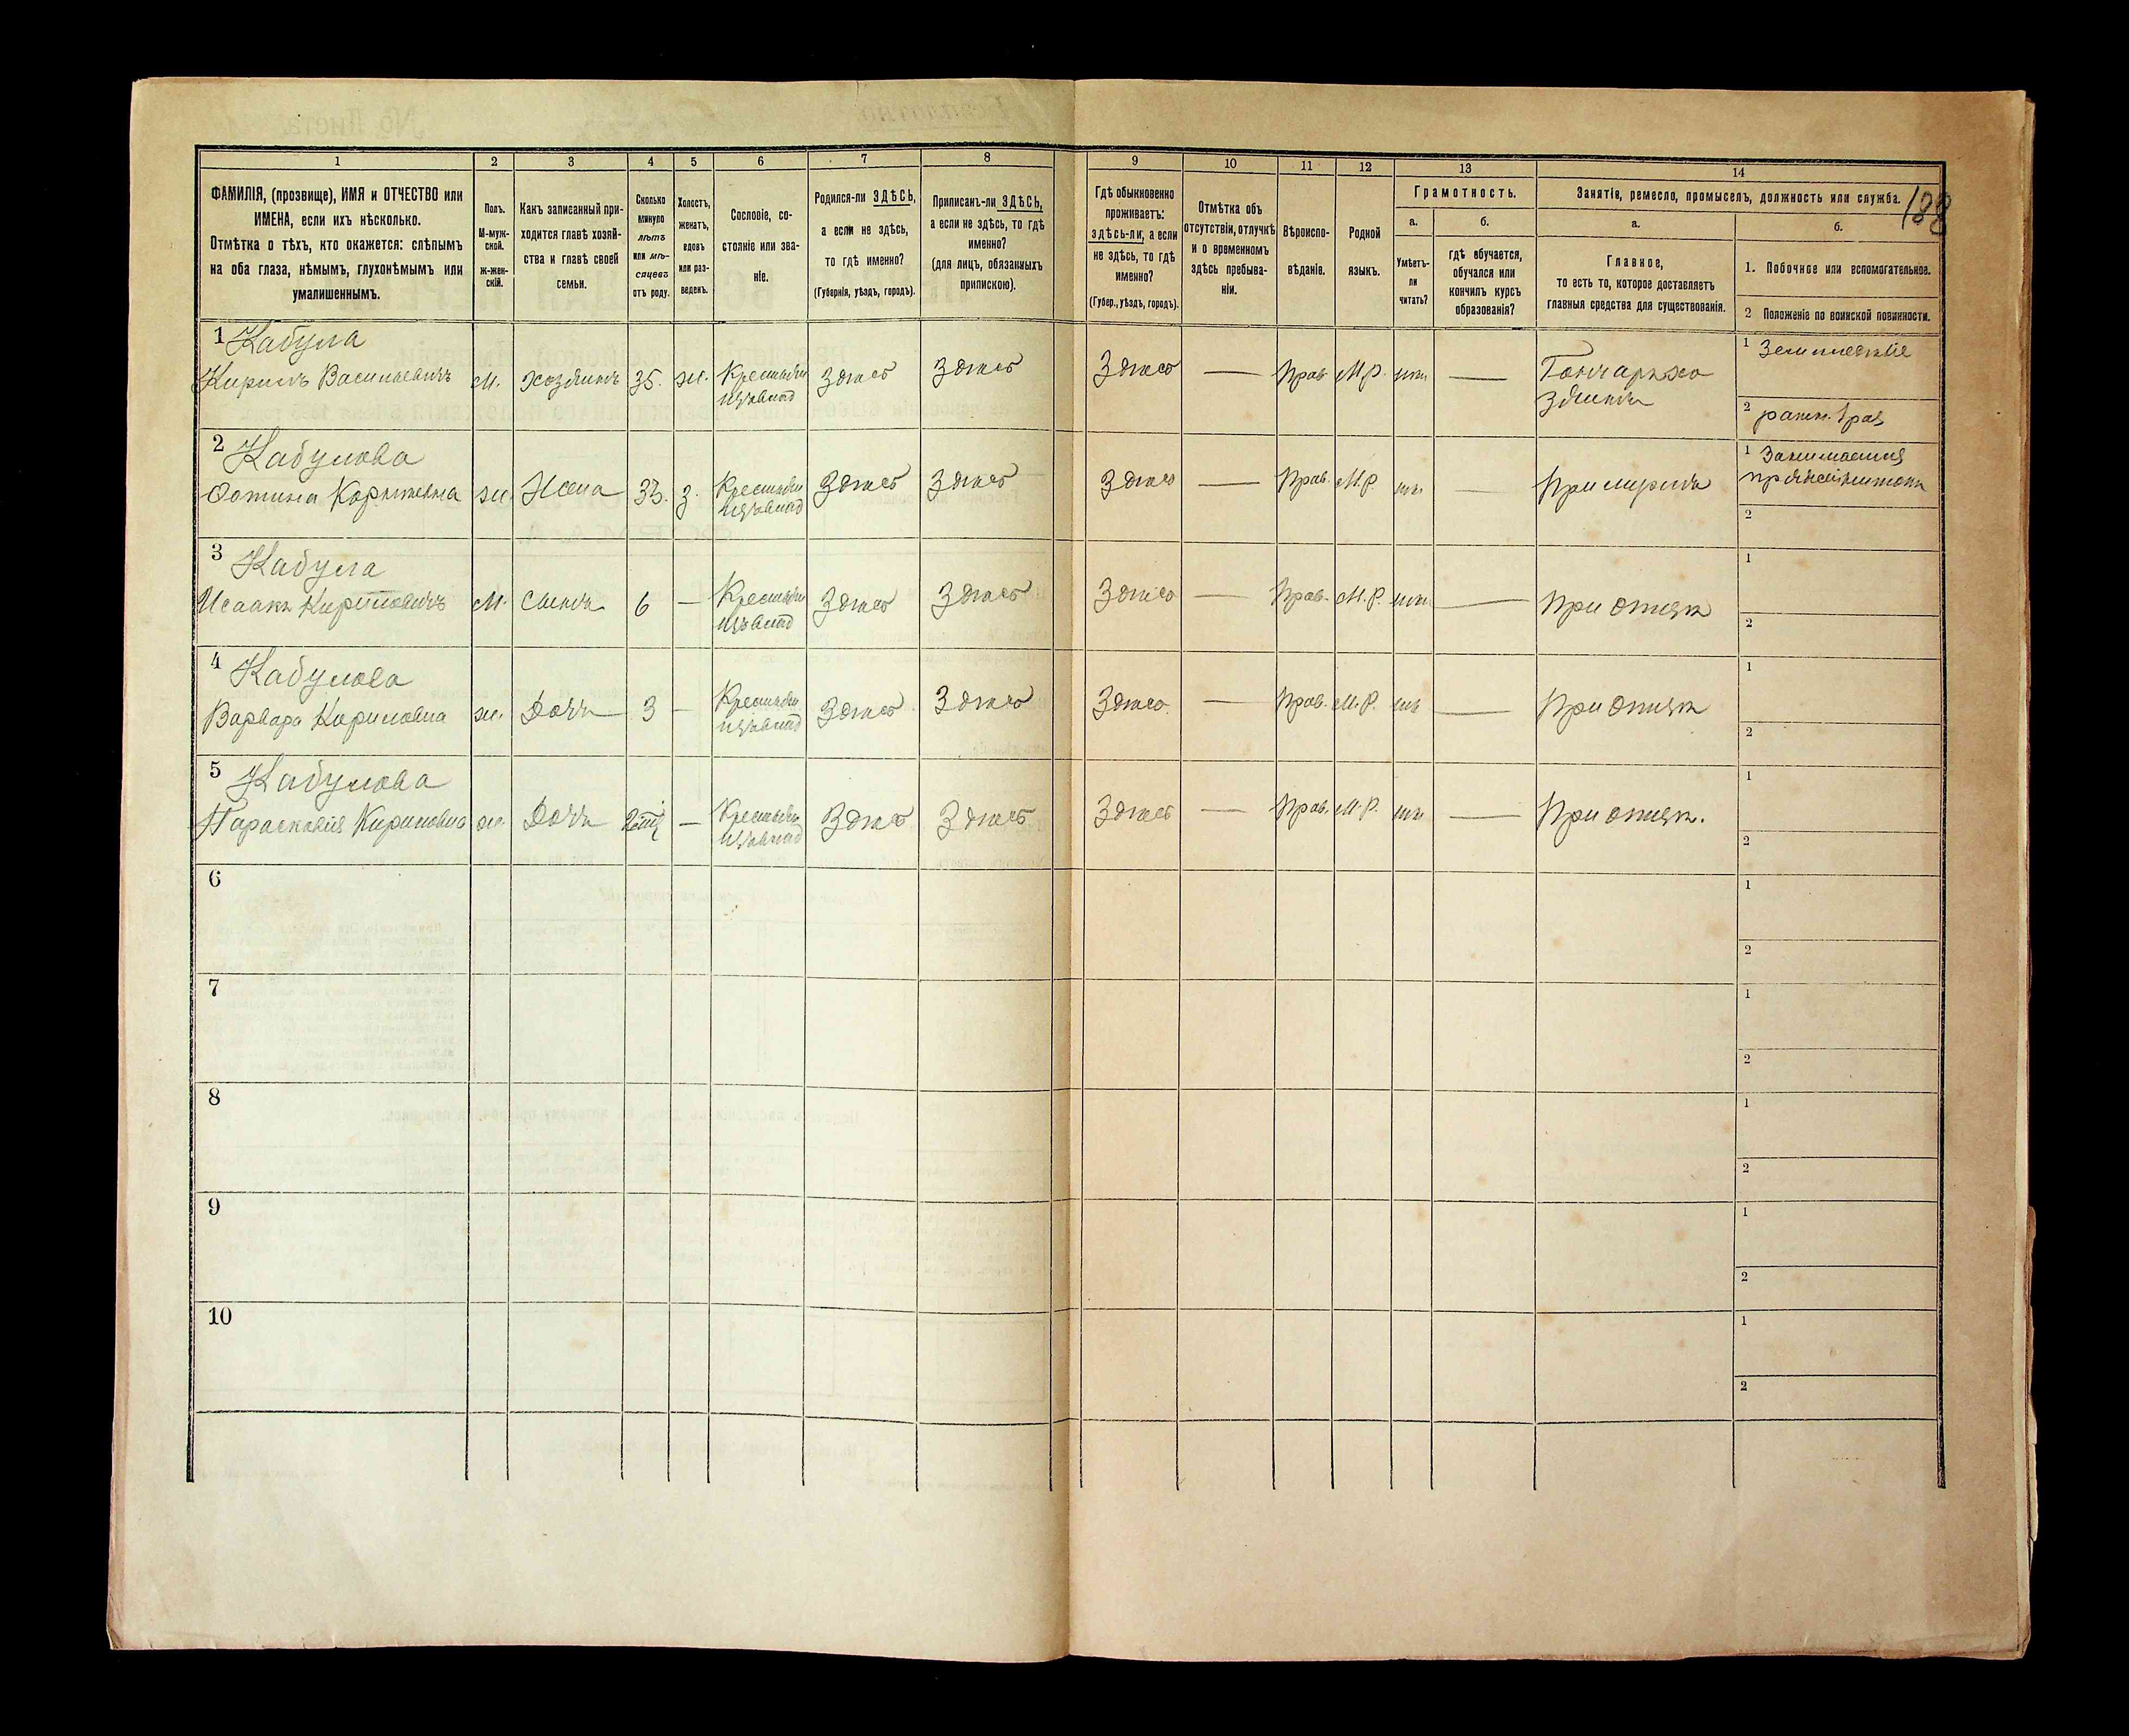 1 2 3 4 5 6 7 8 9 10 11 12 13 14
188
ФАМИЛІЯ, (прозвище), ИМЯ и ОТЧЕСТВО или
ИМЕНА, если ихъ нѣсколько.
Отмѣтка о тѣхъ, кто окажется: слѣпымъ
на оба глаза, нѣмымъ, глухонѣмымъ или
умалишеннымъ.
Полъ.
М-муж-
ской.
Ж-жен-
скій.
Какъ записанный при-
ходится главѣ хозяй-
ства и главѣ своей
семьи.
Сколько
минуло
лѣтъ
или мѣ-
сяцевъ
отъ роду.
Холостъ,
женатъ,
вдовъ
или раз-
веденъ.
Сословіе, со-
стояніе или зва-
ніе.
Родился-ли ЗДѢСЬ,
а если не здѣсь,
то гдѣ именно?
(Губернія, уѣздъ, городъ).
Приписанъ-ли ЗДѢСЬ,
а если не здѣсь, то гдѣ
именно?
(для лицъ, обязанныхъ
припискою).
Гдѣ обыкновенно
проживаетъ:
здѣсь-ли, а если
не здѣсь, то гдѣ
именно?
(Губер., уѣздъ, городъ).
Отмѣтка объ
отсутствіи, отлучкѣ
и о временномъ
здѣсь пребыва-
ніи.
Вѣроиспо-
вѣданіе.
Родной
языкъ.
Грамотность.
а.
Умѣетъ-
ли
читать?
б.
гдѣ обучается,
обучался или
кончилъ курсъ
образованія?
Занятія, ремесло, промыселъ, должность или служба.
а.
Главное,
то есть то, которое доставляетъ
главныя средства для существованія.
б.
1. Побочное или вспомогательное.
2 Положеніе по воинской повинности.
1 Кабула
Кирилъ Васильевичъ м. Хозяинъ 35. ж. Крестьян Здѣсь Здѣсь Здѣсь — Прав М.Р. —
Гончаръ хо
зяинъ
1 Земледѣліе
2 ратн.
2 Кабулова
Жена з. Крестьян Здѣсь Здѣсь Здѣсь — Прав. М.Р. — При мужѣ
1 Занимается
2
3 Кабула
Исаакъ Кириловичъ М. Сынъ 6 — Крестьян Здѣсь Здѣсь Здѣсь — Прав. М.Р. — При отцѣ
1
2
4 Кабулова
Варвара Кириловна ж. Дочь 3 — Крестьян Здѣсь Здѣсь Здѣсь — Прав. М.Р. — При отцѣ
1
2
5 Кабулова
Параскавія Кириловна ж. Дочь — Крестьян Здѣсь Здѣсь Здѣсь — Прав. М.Р. — При отцѣ.
1
2
6
1
2
7
1
2
8
1
2
9
1
2
10
1
2